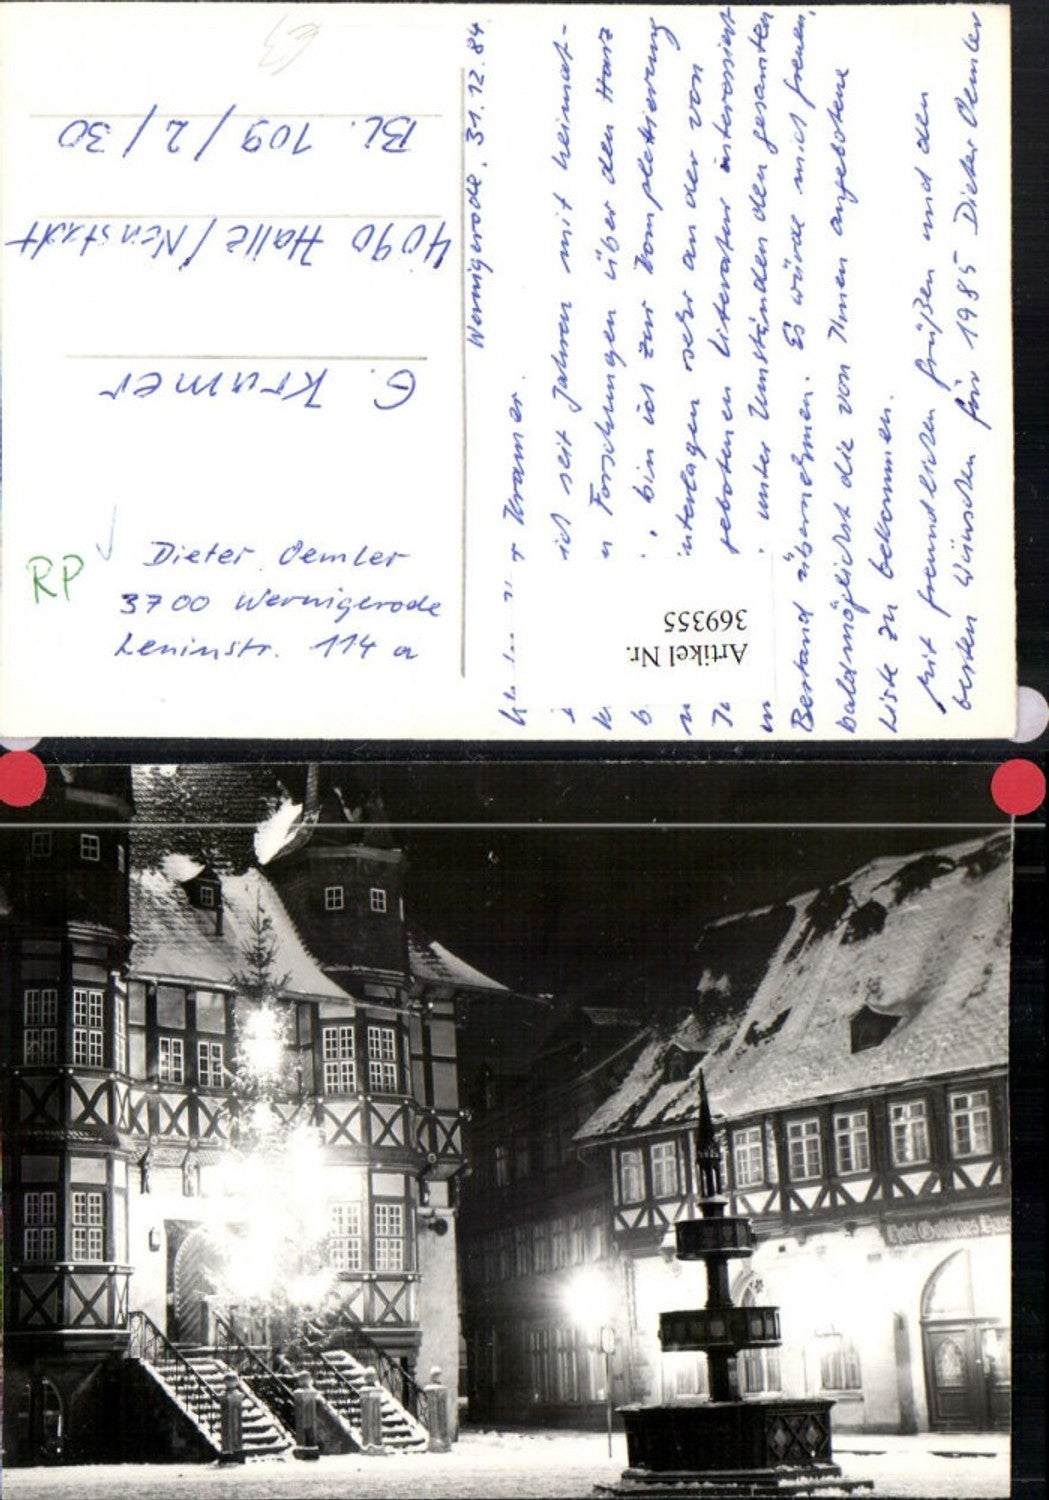 Wernigerode, 31.12.84
Kramer.
ich seit Jahren mit heimat-
Forschungen über den Harz
bin ich zur Komplettierung
sehr an der von
gebotenen Literatur interessiert
unter Umständen den gesamten
Bestand übernehmen. Es würde mich freuen,
baldmöglichst die von Ihnen angebotene
Liste zu bekommen.
Mit freundlichen Grüßen und den
besten Wünschen für 1985 Dieter Oemler
G. Kramer
4090 Halle/Neustadt
Bl. 109/2/30
RP
Dieter Oemler
3700 Wernigerode
Leninstr. 114a
Artikel Nr.
369355
Hotel Gothisches Haus